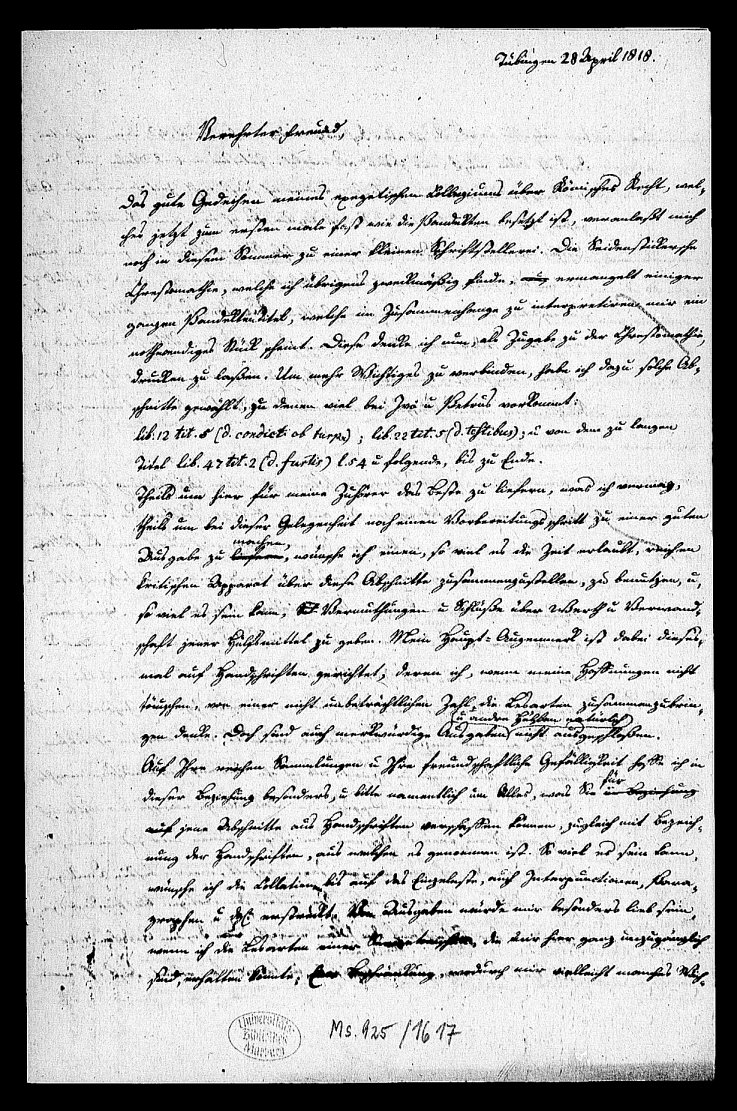 Tübingen 28 April 1818.
Verehrter Freund,
Das gute Gedeihen meines exegetischen Collegiums über Römisches Recht, wel-
ches jetzt zum ersten male fast wie die Pandekten besetzt ist, veranlaßt mich
noch in diesem Sommer zu einer kleinen Schriftstellerei. Die Seidenstikersche
Chrestomathie, welche ich übrigens zweckmäßig finde, ermangelt einiger
ganzen Pandektentitel, welche im Zusammenhange zu interpretiren mir ein
nothwendiges Stück scheint. Diese denke ich nun, als Zugabe zu der Chrestomathie,
drucken zu laßen. Um mehr Wichtiges zu verbinden, habe ich dazu solche Ab-
schnitte gewählt, zu denen viel bei Ivo u Petrus vorkommt:
lib. 12 tit. 5 (d. condict. ob turp.); lib. 22 tit. 5 (d. testibus); u von dem zu langen
Titel lib. 47 tit. 2 (d. furtis) l. 54 u folgende, bis zu Ende.
Theils um hier für meine Zuhörer das Beste zu liefern, was ich vermag,
theils um bei dieser Gelegenheit noch einen Vorbereitungsschritt zu einer guten
Ausgabe zu machen, wünsche ich einen, so viel es die Zeit erlaubt, reichen
kritischen Apparat über diese Abschnitte zusammenzustellen, zu benutzen, u,
so viel es sein kann, Vermuthungen u Schlüße über Werth u Verwand-
schaft jener Hülfsmittel zu geben. Mein Haupt-Augenmerk ist dabei dieses-
mal auf Handschriften gerichtet, deren ich, wenn meine Hoffnungen nicht
täuschen, von einer nicht unbeträchtlichen Zahl, die Lesarten zusammenzubrin-
gen denke. Doch sind auch merkwürdige Ausgaben u andre Hülfen natürlich nicht ausgeschloßen.
Auf Ihre reichen Sammlungen u Ihre freundschaftliche Gefälligkeit hoffe ich in
dieser Beziehung besonders, u bitte namentlich um Alles, was Sie für
jene Abschnitte aus Handschriften verschaffen können, zugleich mit Bezeich-
nung der Handschriften, aus welchen es genommen ist. So viel es sein kann,
wünsche ich die Collation bis auf das Einzelnste, auch Interpunctionen, Para-
graphen u dgl. erstreckt. Von Ausgaben würde mir besonders lieb sein,
wenn ich die Lesarten einer die mir hier ganz unzugänglich
sind, erhalten könnte, wodurch mir vielleicht manches
Universitäts-
Bibliothek
Marburg
Ms. 925/1617